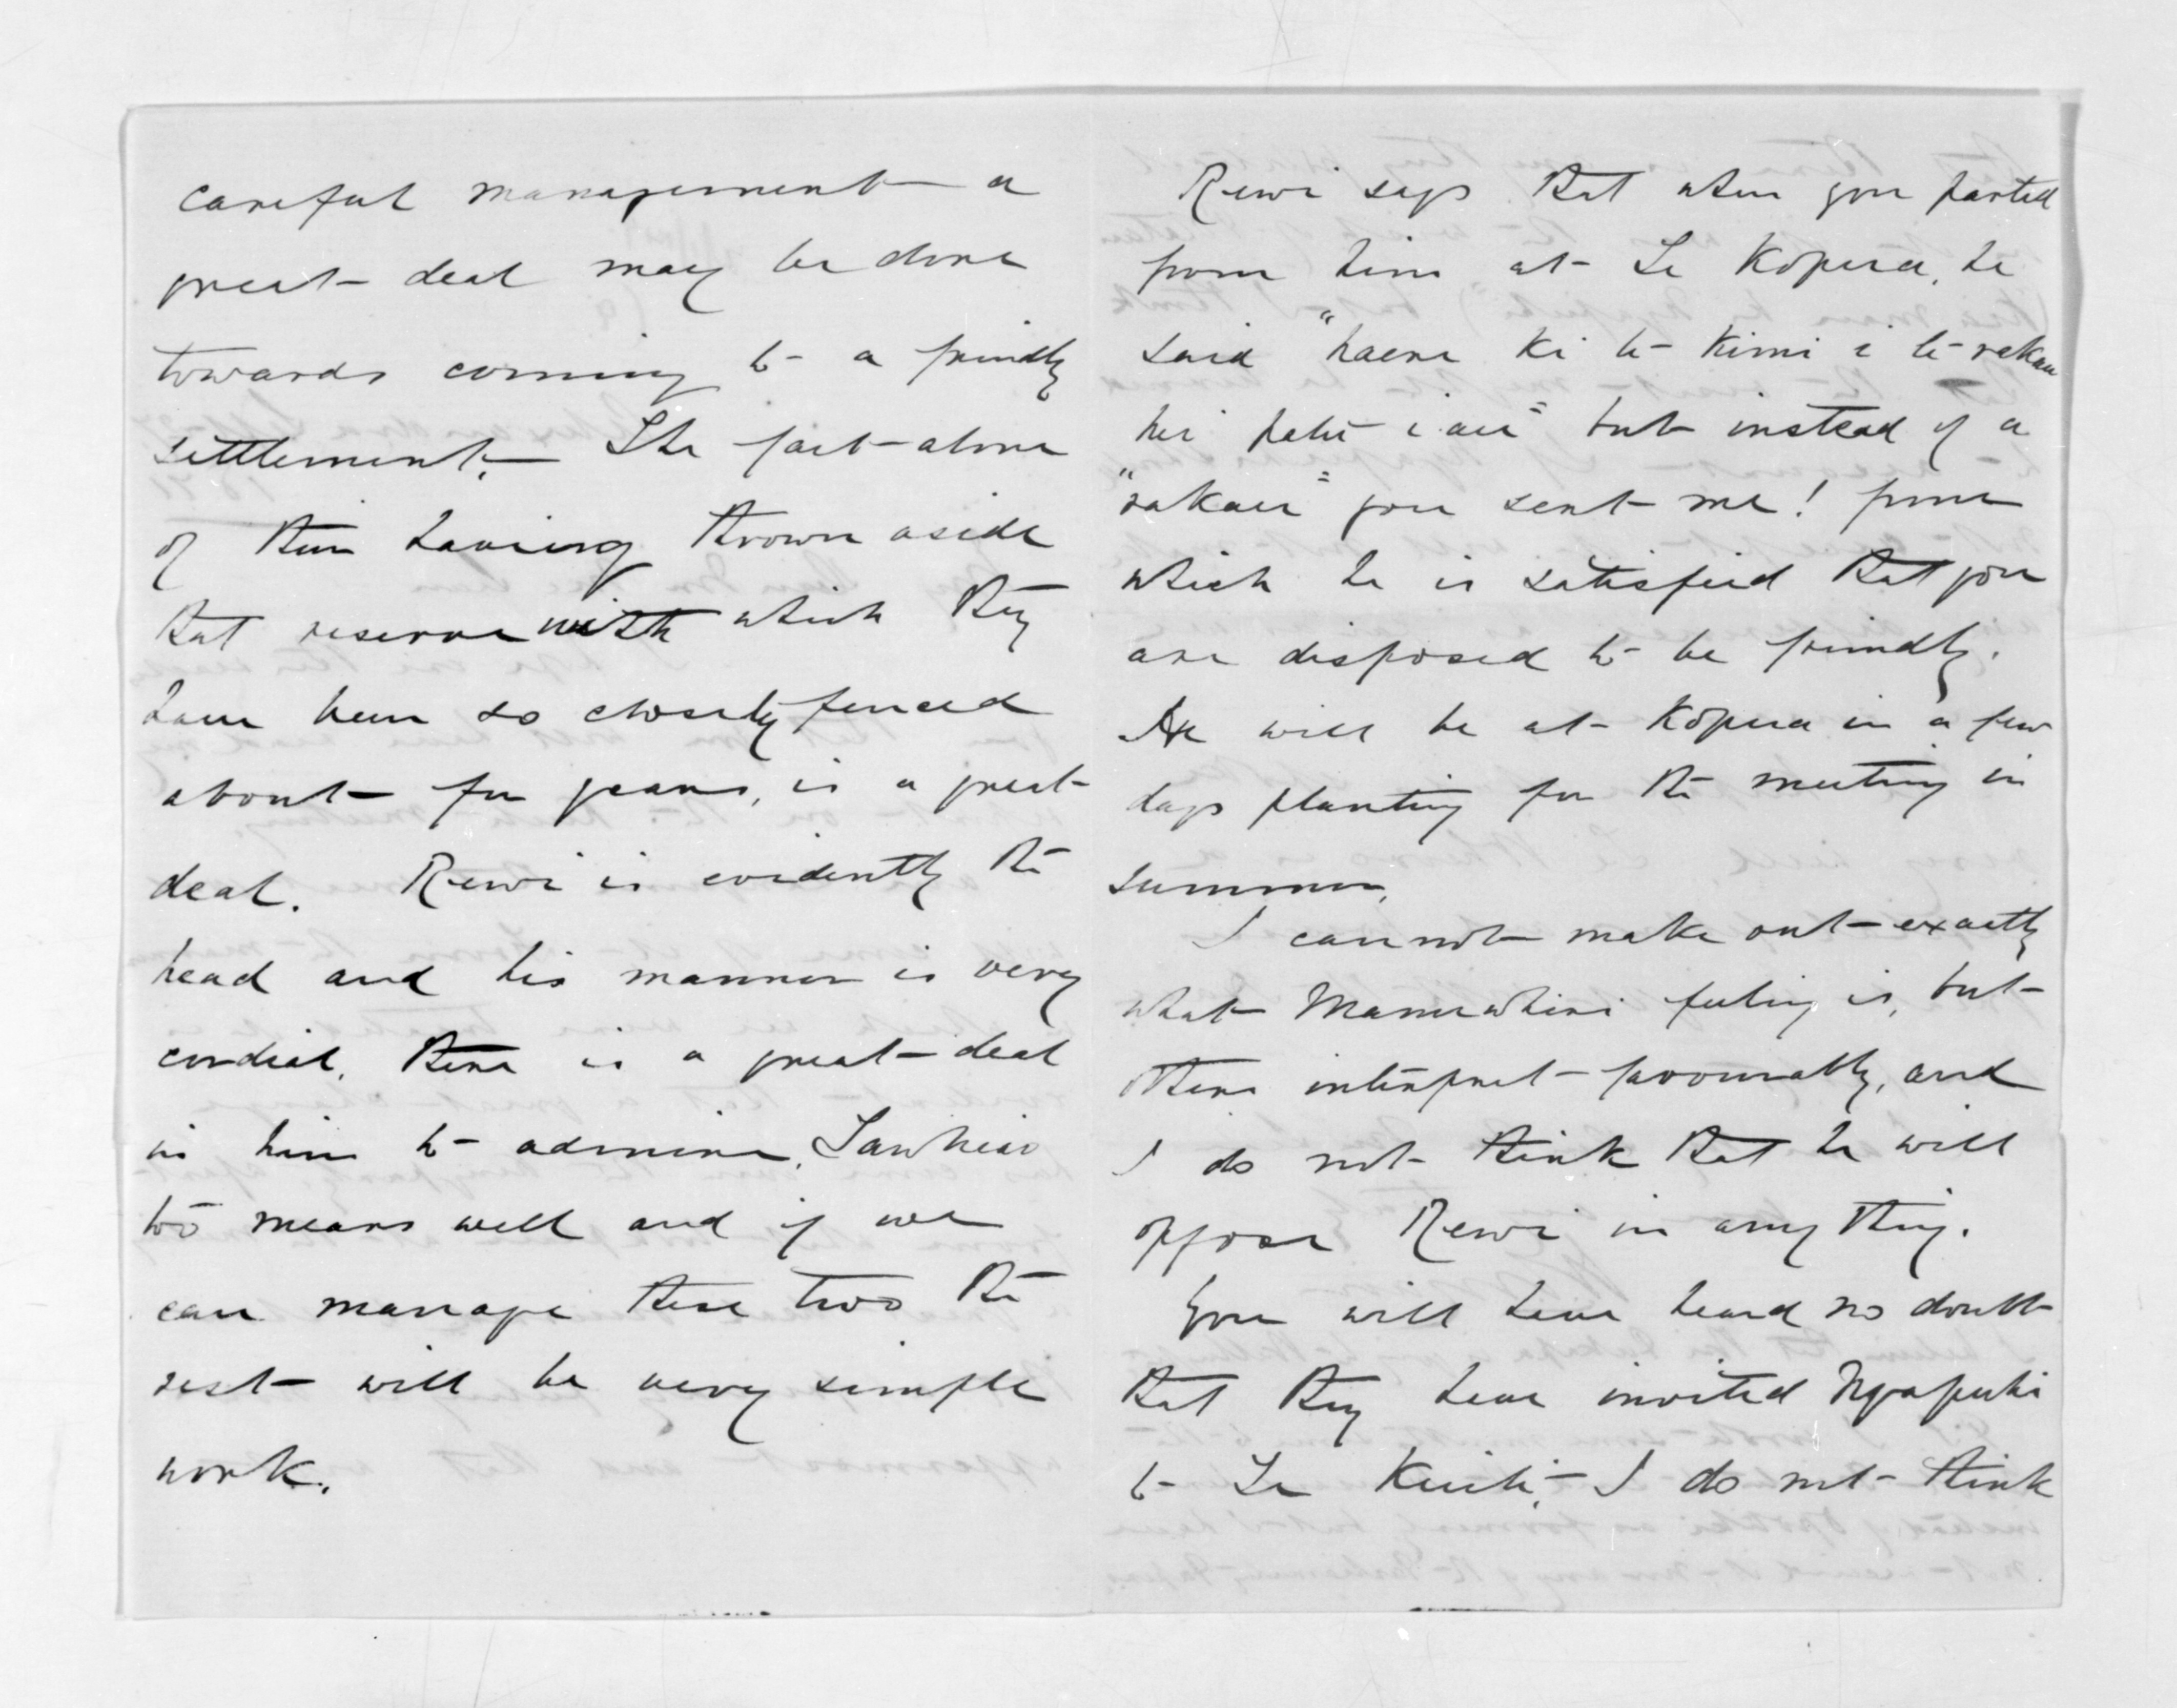 careful management a
great deal may be done
towards coming to a friendly
settlement. The fact alone
of their having thrown aside
that reserve with which they
have been so closely fenced
about for years, is a great
deal. Rewi is evidently the
head and his manner is very
cordial. There is a great deal
in him to admire. Tawhiao
too means well and if we
can manage these two the
rest will be very simple
work.
Rewi says that when you parted
from him at Te Kopua, he
said "haere ki te kimi i te rakau
hei patu i au" but instead of a
"rakau" you sent me! from
which he is satisfied that you
are disposed to be friendly.
He will be at Kopua in a few
days planting for the meeting in
summer.
I cannot make out exactly
what Manuwhiri feeling is, but
others interpret favourably, and
I do not think that he will
oppose Rewi in any thing.
You will have heard no doubt
that they have invited Ngapuhi
to Te Kuiti. I do not think